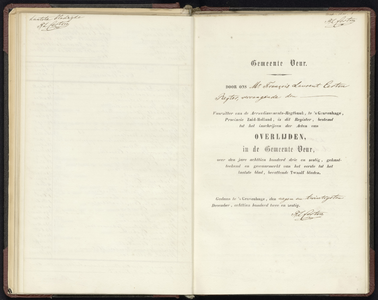 laatste bladzijde
Gemeente Veur.
DOOR ONS Mr François Laurent
Regter, vervangende den
Voorzitter van de Arrondissements-Regtbank, te 's Gravenhage,
Provincie Zuid-Holland, is dit Register, bestemd
tot het inschrijven der Acten van
OVERLIJDEN,
in de Gemeente Veur,
over den jare achttien honderd drie en zestig, gekant-
teekend en gewaarmerkt van het eerste tot het
laatste blad, bevattende Twaalf bladen.
Gedaan te 's Gravenhage, den negen en twintigsten
December, achttien honderd twee en zestig.